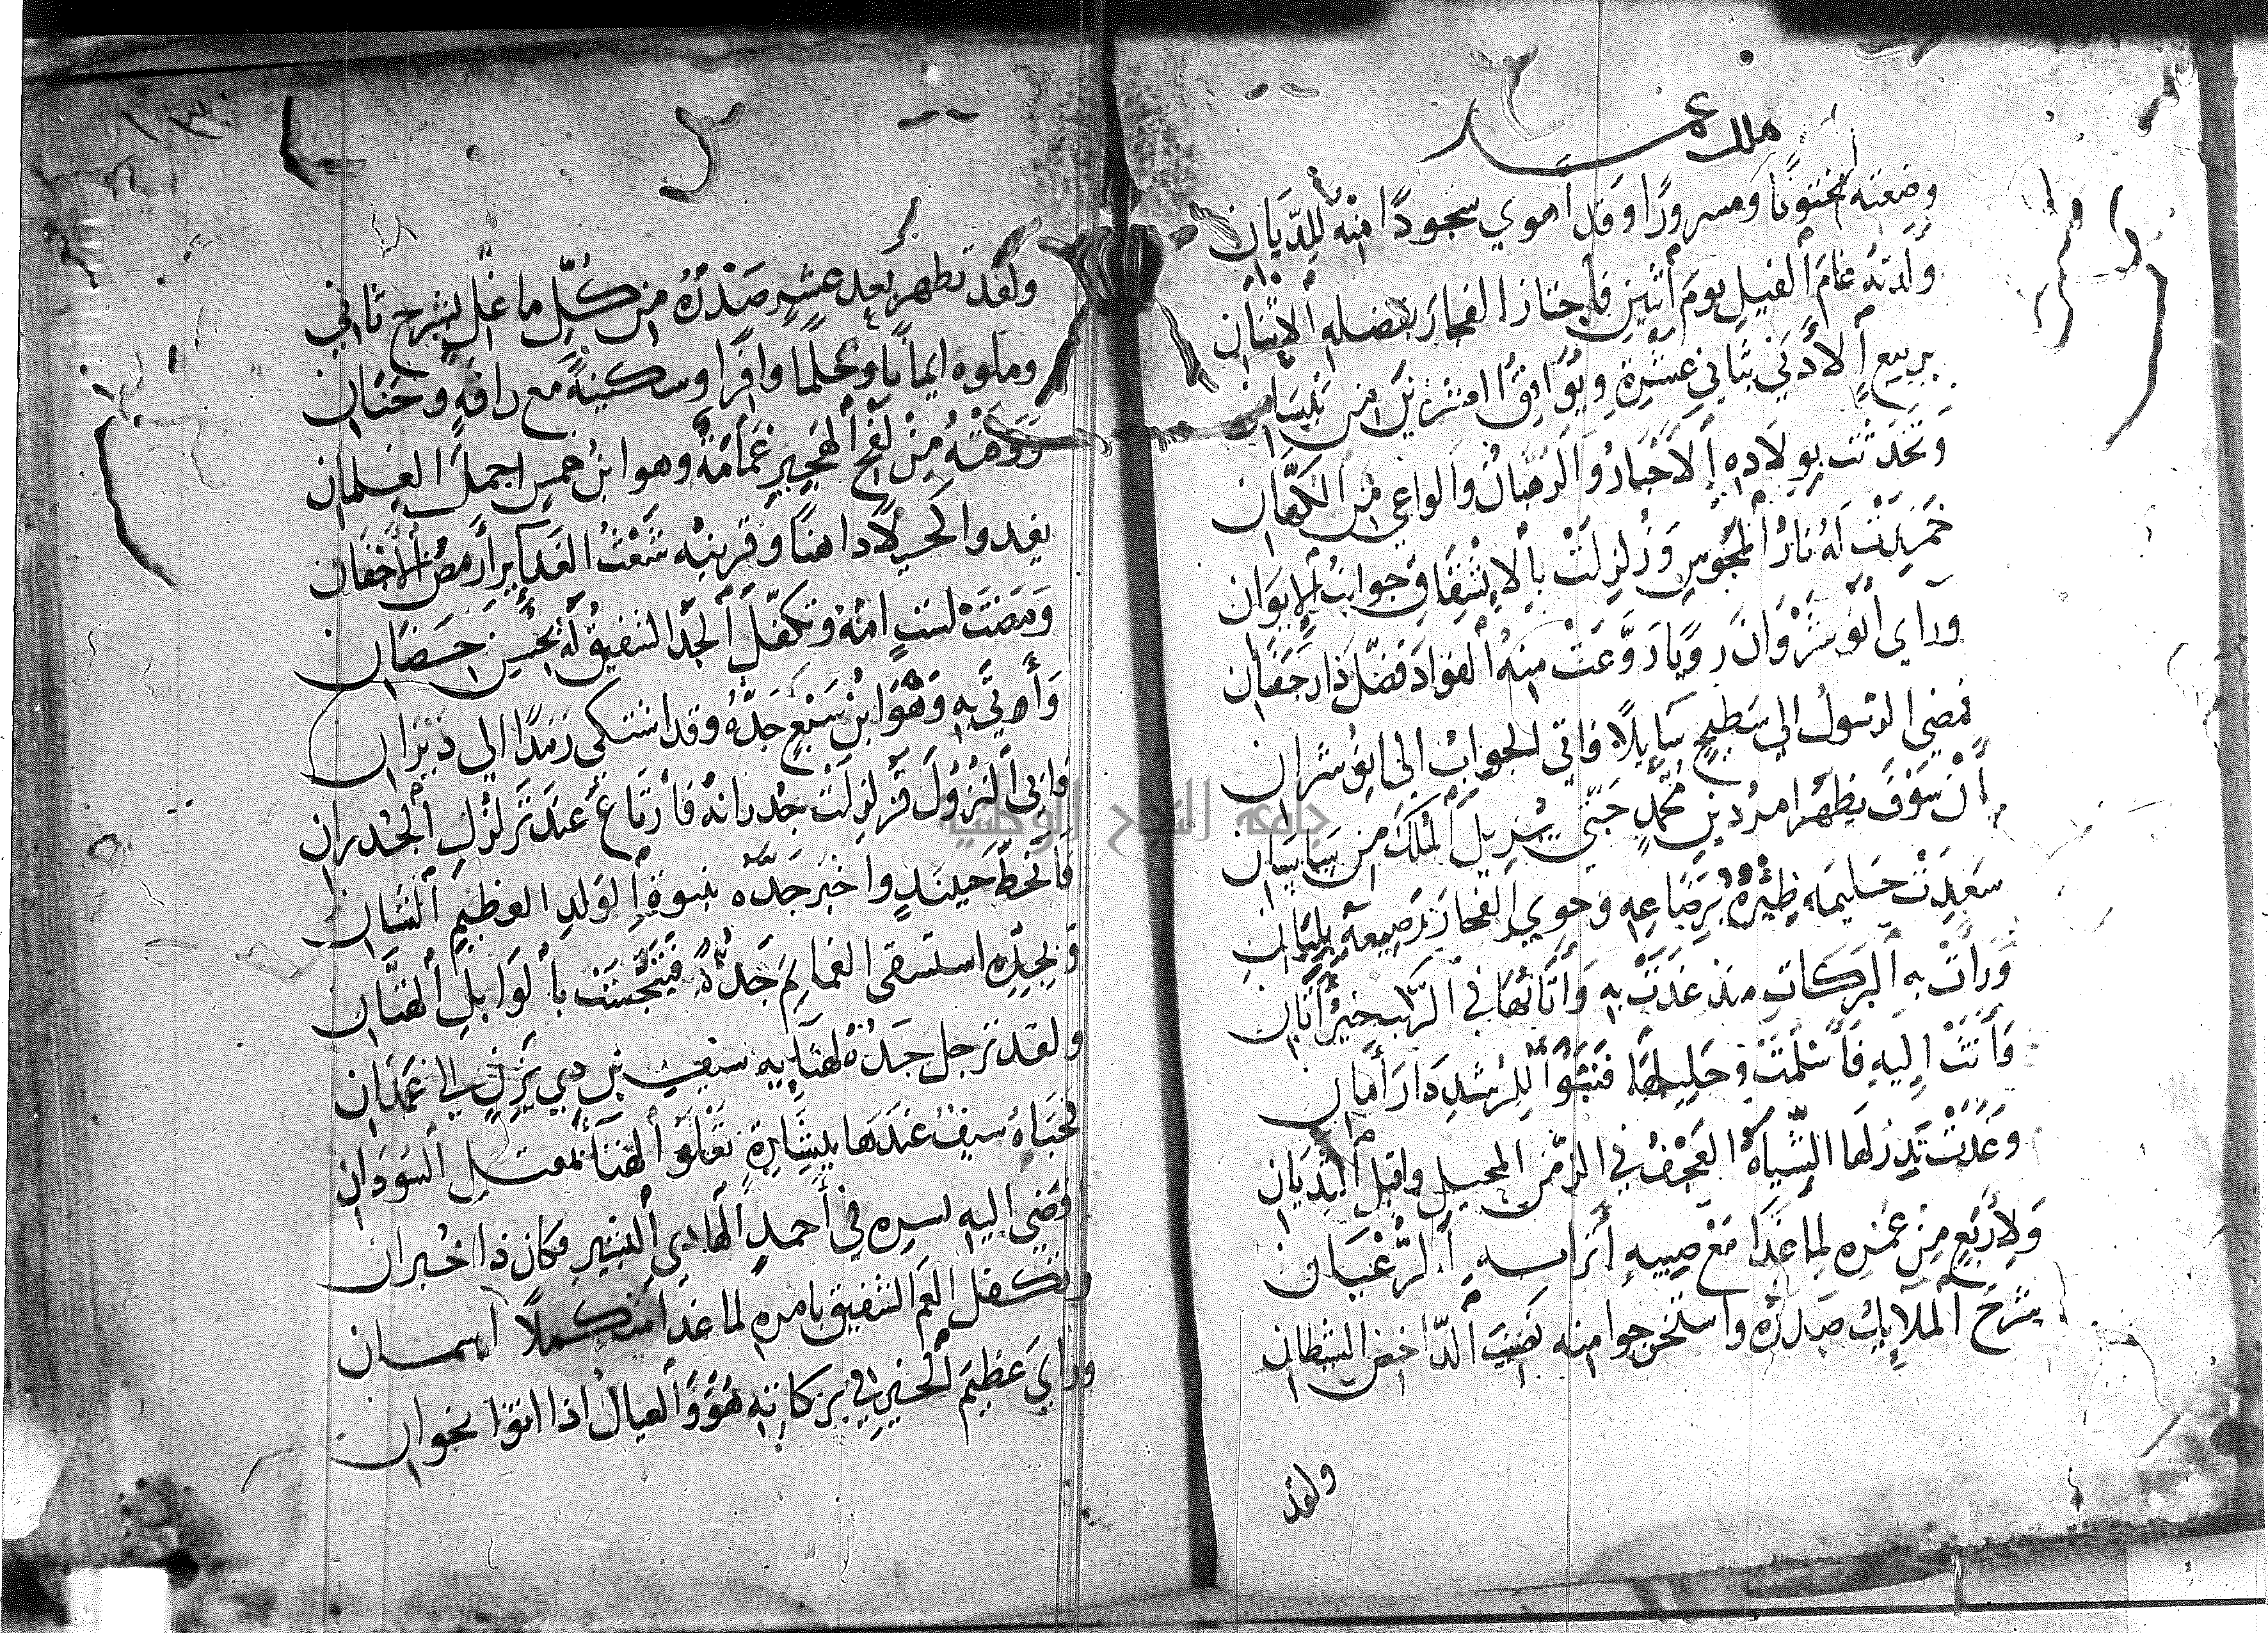 ملك
وضعته مختونا ومسرورا وقد اهوي سجودا منه للديان
ولدته عام الفيل يوم اثنين فاجتاز الفخار بفضله الاثنان
بربيع الادني بثاني عشرة ويوافق العشرين من نيسان
وتحدثت بولاده الاحبار والرهبان والواعي من الكهان
خمدت له نار المجوس وزلزلت بالانشقاق جوانب الايوان
وراي انوشروان رويا روعت منه الفواد فضل ذا رجفان
فمضي الرسول الي سطيح سايلا فاتي الجواب الي انوشران
ان سوف يظهر امر دين محمد حتي يزيل الملك من ساسان
سعدت حليمة ظيره برضاعه وحوي الفخار رضيعه بلبان
ورات به البركات منذ غدت به واتانها في الركب خير اتان
فاتت اليه فاسلمت وحليلها فتبوا للرشد دار امان
وغدت تدر لها الشياه العجف في الزمن المحيل واقبل الثديان
ولاربع من عمره لما غدا مع صبية اترابه الرعيان
شرح الملايك صدره واستخرجوا منه نصيب الداحض الشيطان
ولقد
ولقد تطهر بعد عشر صدره من كل ما غل بشرح ثاني
وملوه ايمانا وحلما وافرا وسكينة مع رافة وحنان
ووقته من لفح الهجير غمامة وهو ابن خمس اجمل الغلمان
يغدوا كحيلا داهنا وقرينه شعث الغداير ارمص الاجفان
ومضت لست امه وتكفل الجد الشفيق له بحسن حضان
واتي به وهو ابن سبع جده وقد اشتكي رمدا الي ديران
فابي النزول فزلزلت جدرانه فارتاع عند تزلزل الجدران
فانحط حينيذ واخبر جده بنبوة الولد العظيم الشان
وبجده استسقي الغمايم جده فتبجست بالوابل الهتان
ولقد ترجل جده لهنايه سيف بن ذي يزن الي غمدان
فحباه سيف عندها ببشارة تعلو الهنا بمقتل السودان
فضي اليه لسره في احمد الهادي البشير فكان ذا خبران
وتكفل العم الشفيق بامره لما غدا متكملا لثمان
وراي عظيم الخير في بركاته هو والعيال اذا اتوا لخوان